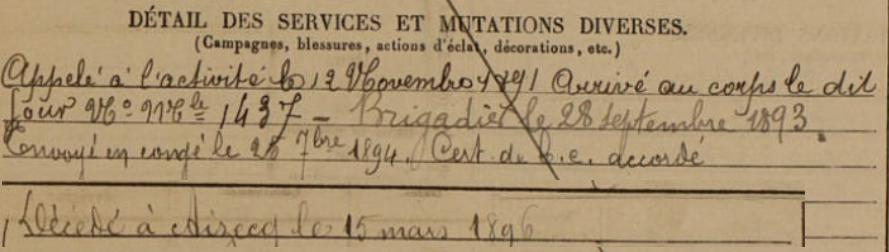 DÉTAIL DES SERVICES ET MUTATIONS DIVERSES.
(Campagnes, blessures, actions d'éclat, décorations, etc.)
Appelé à l'activité le 12 Novembre 1891 Arrivé au corps le dit
Jour No Mle 1437 - Brigadier le 28 septembre 1893.
Envoyé en congé le 7bre 1894. Cert. de b.c. accordé
Décédé à Aizecq le 15 mars 1896